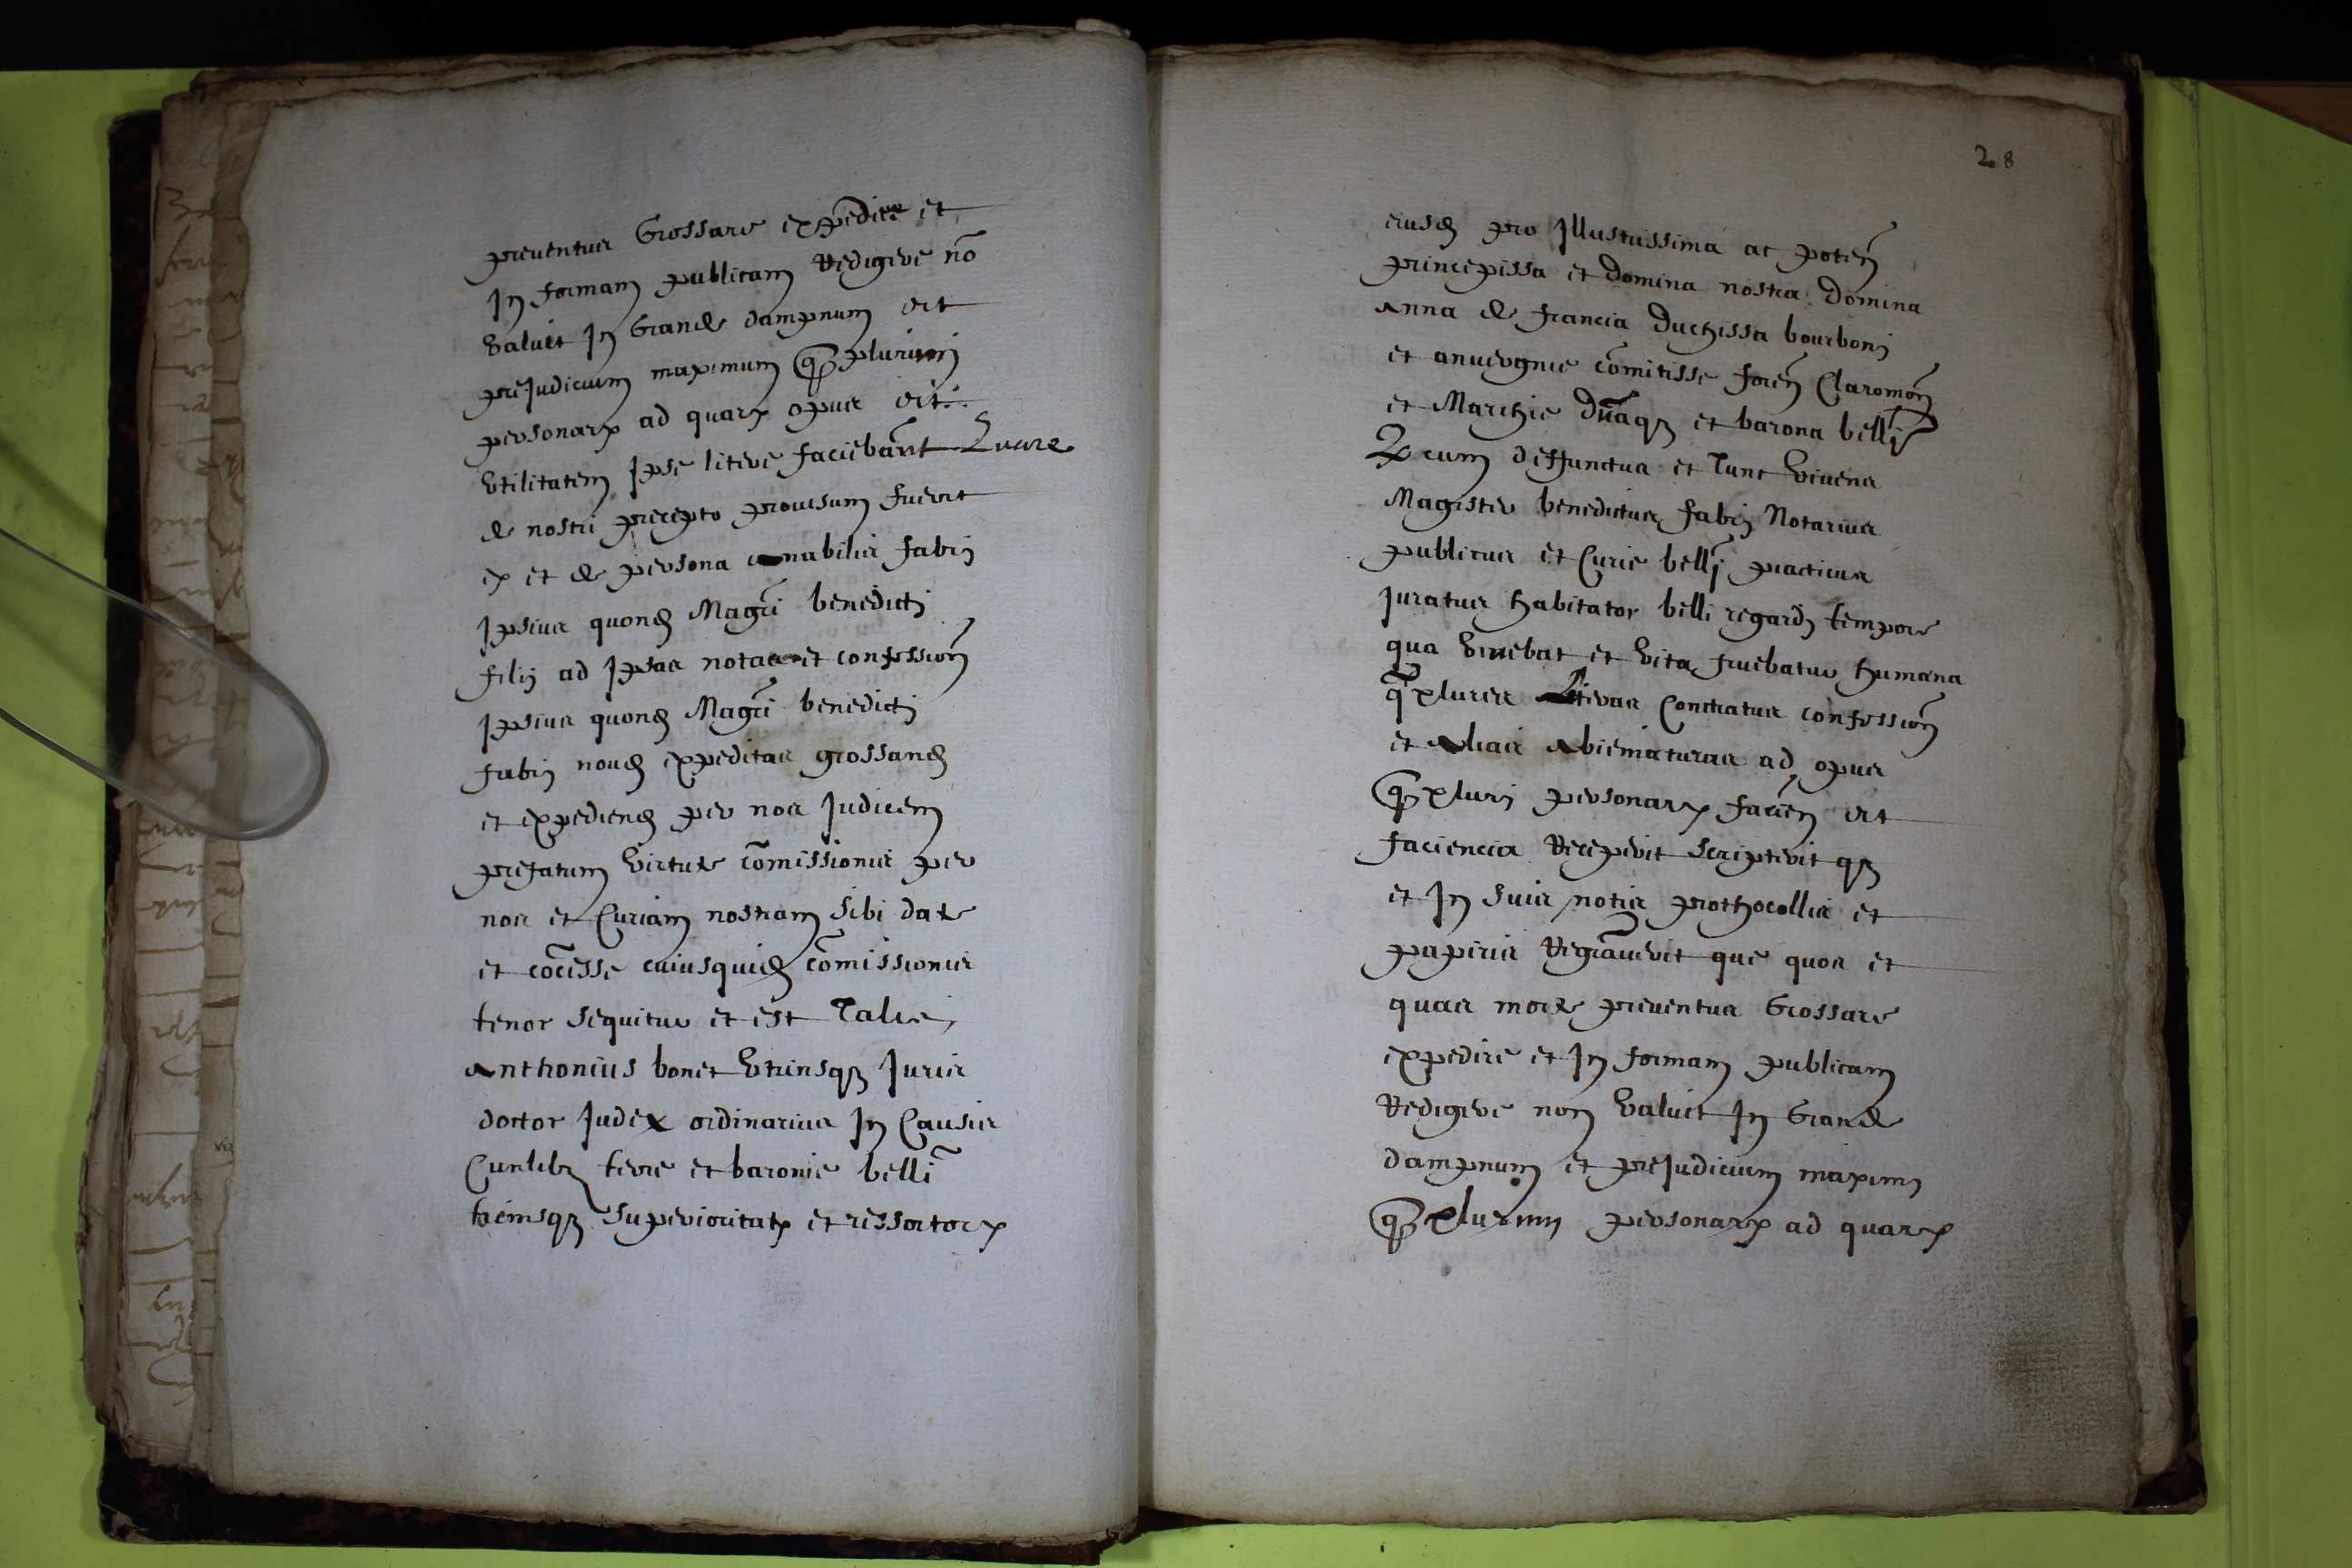 preventus Grossare expedire et
In formam publicam Redigere nō
Valuit In Grande dampnum et
prejudicium maximum qͣplurium
personarꝝ ad quarꝝ opus et
Utilitatem Ipse litere faciebant Quare
de nostri precepto provisum fuerit
ex et de persona nabilis fabri
Ipsius quondꝫ Magrī benedicti
filij ad Ipsas notas et confession̄
Ipsius quondꝫ Magrī benedicti
fabri nondꝫ expeditas grossandꝫ
et expediendꝫ per nos Judicem
prefatum Virtute cōmissionis per
nos et Curiam nostram sibi date
et cōcesse cuiusquidꝫ cōmissionis
tenor sequitur et est Talis
Anthonius bonet Utriusqꝫ Juris
doctor Judex ordinarius In Causis
Cunlibꝫ terre et baronie bellī
superioritatꝫ et ressortorꝝ
28
eiusdꝫ pro Illustrissima ac poten̄
principissa et domina nostra domina
Anna de francia Duchissa bourbonj
et anvergnie cōmitisse foren̄ Claromon̄
et Marchie dn̄aqꝫ et barona bellī
Cum deffunctus et Tunc Vivens
Magister benedictus fabrj Notarius
publicus et Curie bellj practicus
Juratus habitator belli regardj tempore
quo Vivebat et Vita fruebatur humana
qͣplures Literas Contractus confession̄
et Alias Abienaturas ad opus
qͣplurī personarꝝ facien̄ et
faciencia Recepit scripterit qꝫ
et In suis notis prothocollis et
papiris Regrāverit que quos et
quas morte preventus Grossare
expedire et In formam publicam
Redigere non Valuit In Grande
dampnum et preJudicium maximū
qͣplurium personarꝝ ad quarꝝ